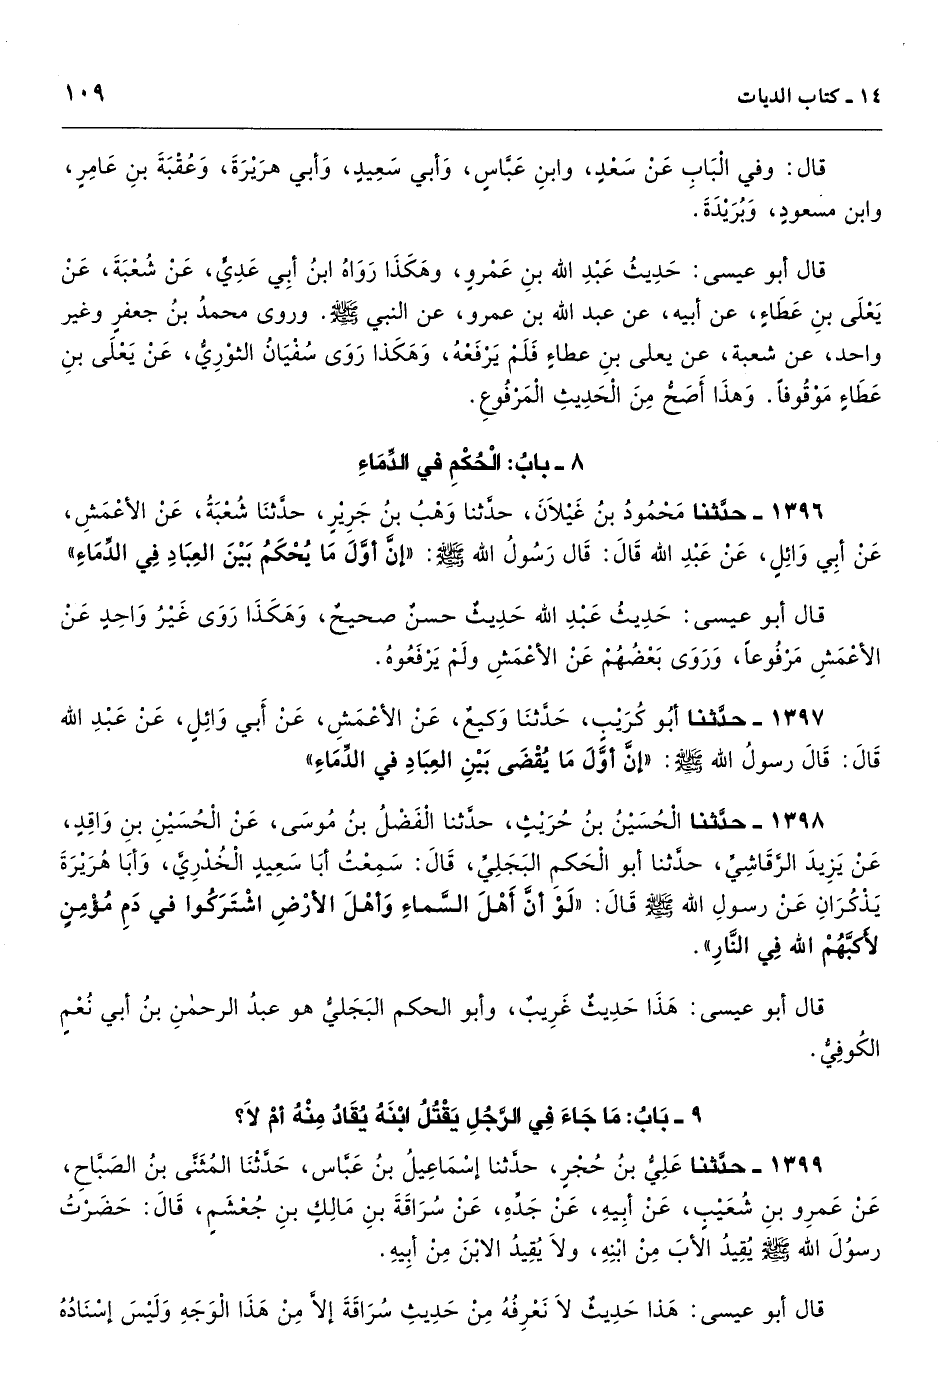 ١٤ ـ كتاب الديات ١٠٩
قال: وفي الْبَابِ عَنْ سَعْدٍ، وابنِ عَبَّاسٍ، وَأبي سَعِيدٍ، وَأبي هرَيْرَةَ، وَعُقْبَةَ بنِ عَامِرٍ،
وابن مسعودٍ، وَبُرَيْدَةَ.
قال أبو عيسى: حَدِيثُ عَبْدِ الله بنِ عَمْرٍو، وهَكَذَا رَوَاهُ ابنُ أبي عَدِيٍّ، عَنْ شُعْبَةَ، عَنْ
يَعْلَى بنِ عَطَاءٍ، عن أبيه، عن عبد الله بن عمرو، عن النبي ﷺ. وروى محمدُ بنُ جعفرٍ وغير
واحد، عن شعبة، عن يعلى بنِ عطاءٍ فَلَمْ يَرْفَعْهُ، وَهَكَذا رَوَى سُفْيَانُ الثوْرِيُّ، عَنْ يَعْلَى بنِ
عَطَاءٍ مَوْقُوفاً. وَهذَا أَصَحُّ مِنَ الْحَدِيثِ الْمَرْفُوعِ.
٨ ـ بابُ: الْحُكْمِ في الدِّمَاءِ
١٣٩٦ ـ حدَّثنا مَحْمُودُ بنُ غَيْلاَنَ، حدَّثنا وَهْبُ بنُ جَرِيْرٍ، حدَّثنَا شُعْبَةُ، عَنْ الأعْمَشِ،
عَنْ أبي وَائِلٍ، عَنْ عَبْدِ الله قَالَ: قَال رَسُولُ الله ﷺ: «إنَّ أوَّلَ مَا يُحْكَمُ بَيْنَ العِبَادِ فِي الدِّمَاءِ»
قال أبو عيسى: حَدِيثُ عَبْدِ الله حَدِيثٌ حسنٌ صحيحٌ، وَهَكَذَا رَوَى غَيْرُ وَاحِدٍ عَنْ
الأعْمَشِ مَرْفُوعاً، وَرَوَى بَعْضُهُمْ عَنْ الأعْمَشِ ولَمْ يَرْفَعُوهُ.
١٣٩٧ ـ حدَّثنا أبُو كُرَيْبٍ، حَدَّثنَا وَكِيعٌ، عَنْ الأعْمَشِ، عَنْ أبي وَائِلٍ، عَنْ عَبْدِ الله
قَالَ: قَالَ رسولُ الله ﷺ: «إنَّ أوَّلَ مَا يُقْضَى بَيْنِ العِبَادِ في الدِّمَاءِ»
١٣٩٨ ـ حدَّثنا الْحُسَيْنُ بنُ حُرَيْثٍ، حدَّثنا الْفَضْلُ بنُ مُوسَى، عَنْ الْحُسَيْنِ بنِ وَاقِدٍ،
عَنْ يَزِيدَ الرَّقَاشِيِّ، حدَّثنا أبو الْحَكمِ البَجَلِيِّ، قَالَ: سَمِعْتُ أبَا سَعِيدٍ الْخُدْرِيَّ، وَأبَا هُرَيْرَةَ
يَذْكُرَانِ عَنْ رسولِ الله ﷺ قَالَ: «لَوْ أنَّ أَهْلَ السَّماءِ وَأهْلَ الأرْضِ اشْتَرَكُوا في دَمِ مُؤْمِنٍ
لأكَبَّهُمْ الله فِي النَّارِ».
قال أبو عيسى: هَذَا حَدِيثٌ غَرِيبٌ، وأبو الحكم البَجَليُّ هو عبدُ الرحمٰنِ بنُ أبي نُعْمٍ
الكُوفِيُّ.
٩ ـ بَابُ: مَا جَاءَ فِي الرَّجُلِ يَقْتُلُ ابْنَهُ يُقَادُ مِنْهُ أمْ لاَ؟
١٣٩٩ ـ حدَّثنا عَلِيُّ بنُ حُجْرٍ، حدَّثنا إسْمَاعِيلُ بنُ عَيَّاس، حَدَّثْنَا المُثَنَّى بنُ الصَبَّاحِ،
عَنْ عَمرِو بنِ شُعَيْبٍ، عَنْ أبِيهِ، عَنْ جَدِّهِ، عَنْ سُرَاقَةَ بنِ مَالِكٍ بنِ جُعْشَمٍ، قَالَ: حَضَرْتُ
رسوُلَ الله ﷺ يُقِيدُ الأبَ مِنْ ابْنِهِ، ولاَ يُقِيدُ الابْنَ مِنْ أبِيهِ.
قال أبو عيسى: هَذا حَدِيثٌ لاَ نَعْرِفُهُ مِنْ حَدِيثِ سُرَاقَةَ إلاَّ مِنْ هَذَا الْوَجَهِ وَلَيْسَ إسْنَادُهُ